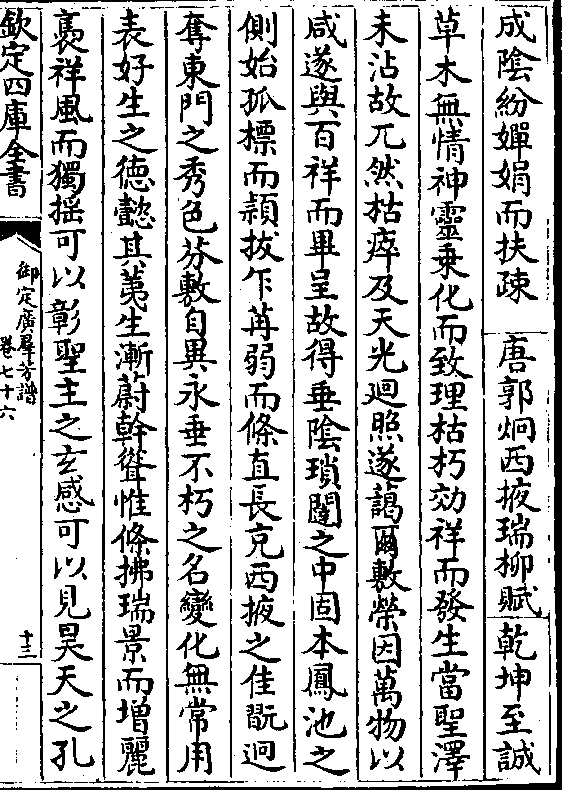 成陰紛嬋娟而扶疎　唐郭炯西掖瑞柳賦　乾坤至誠
草木無情神靈乗化而致理枯朽効祥而發生當聖澤
未沾故兀然枯瘁及天光廻照遂藹爾敷榮因萬物以
咸遂與百祥而畢呈故得垂陰瑣闥之中固本鳳池之
側始孤標而頴拔乍苒弱而條直長充西掖之佳翫迥
奪東門之秀色芬敷自異永垂不朽之名變化無常用
表好生之徳懿其荑生漸蔚幹聳惟條拂瑞景而增麗
裛祥風而獨揺可以彰聖主之玄感可以見昊天之孔
欽定四庫全書
御定廣羣芳譜
卷七十六
十三